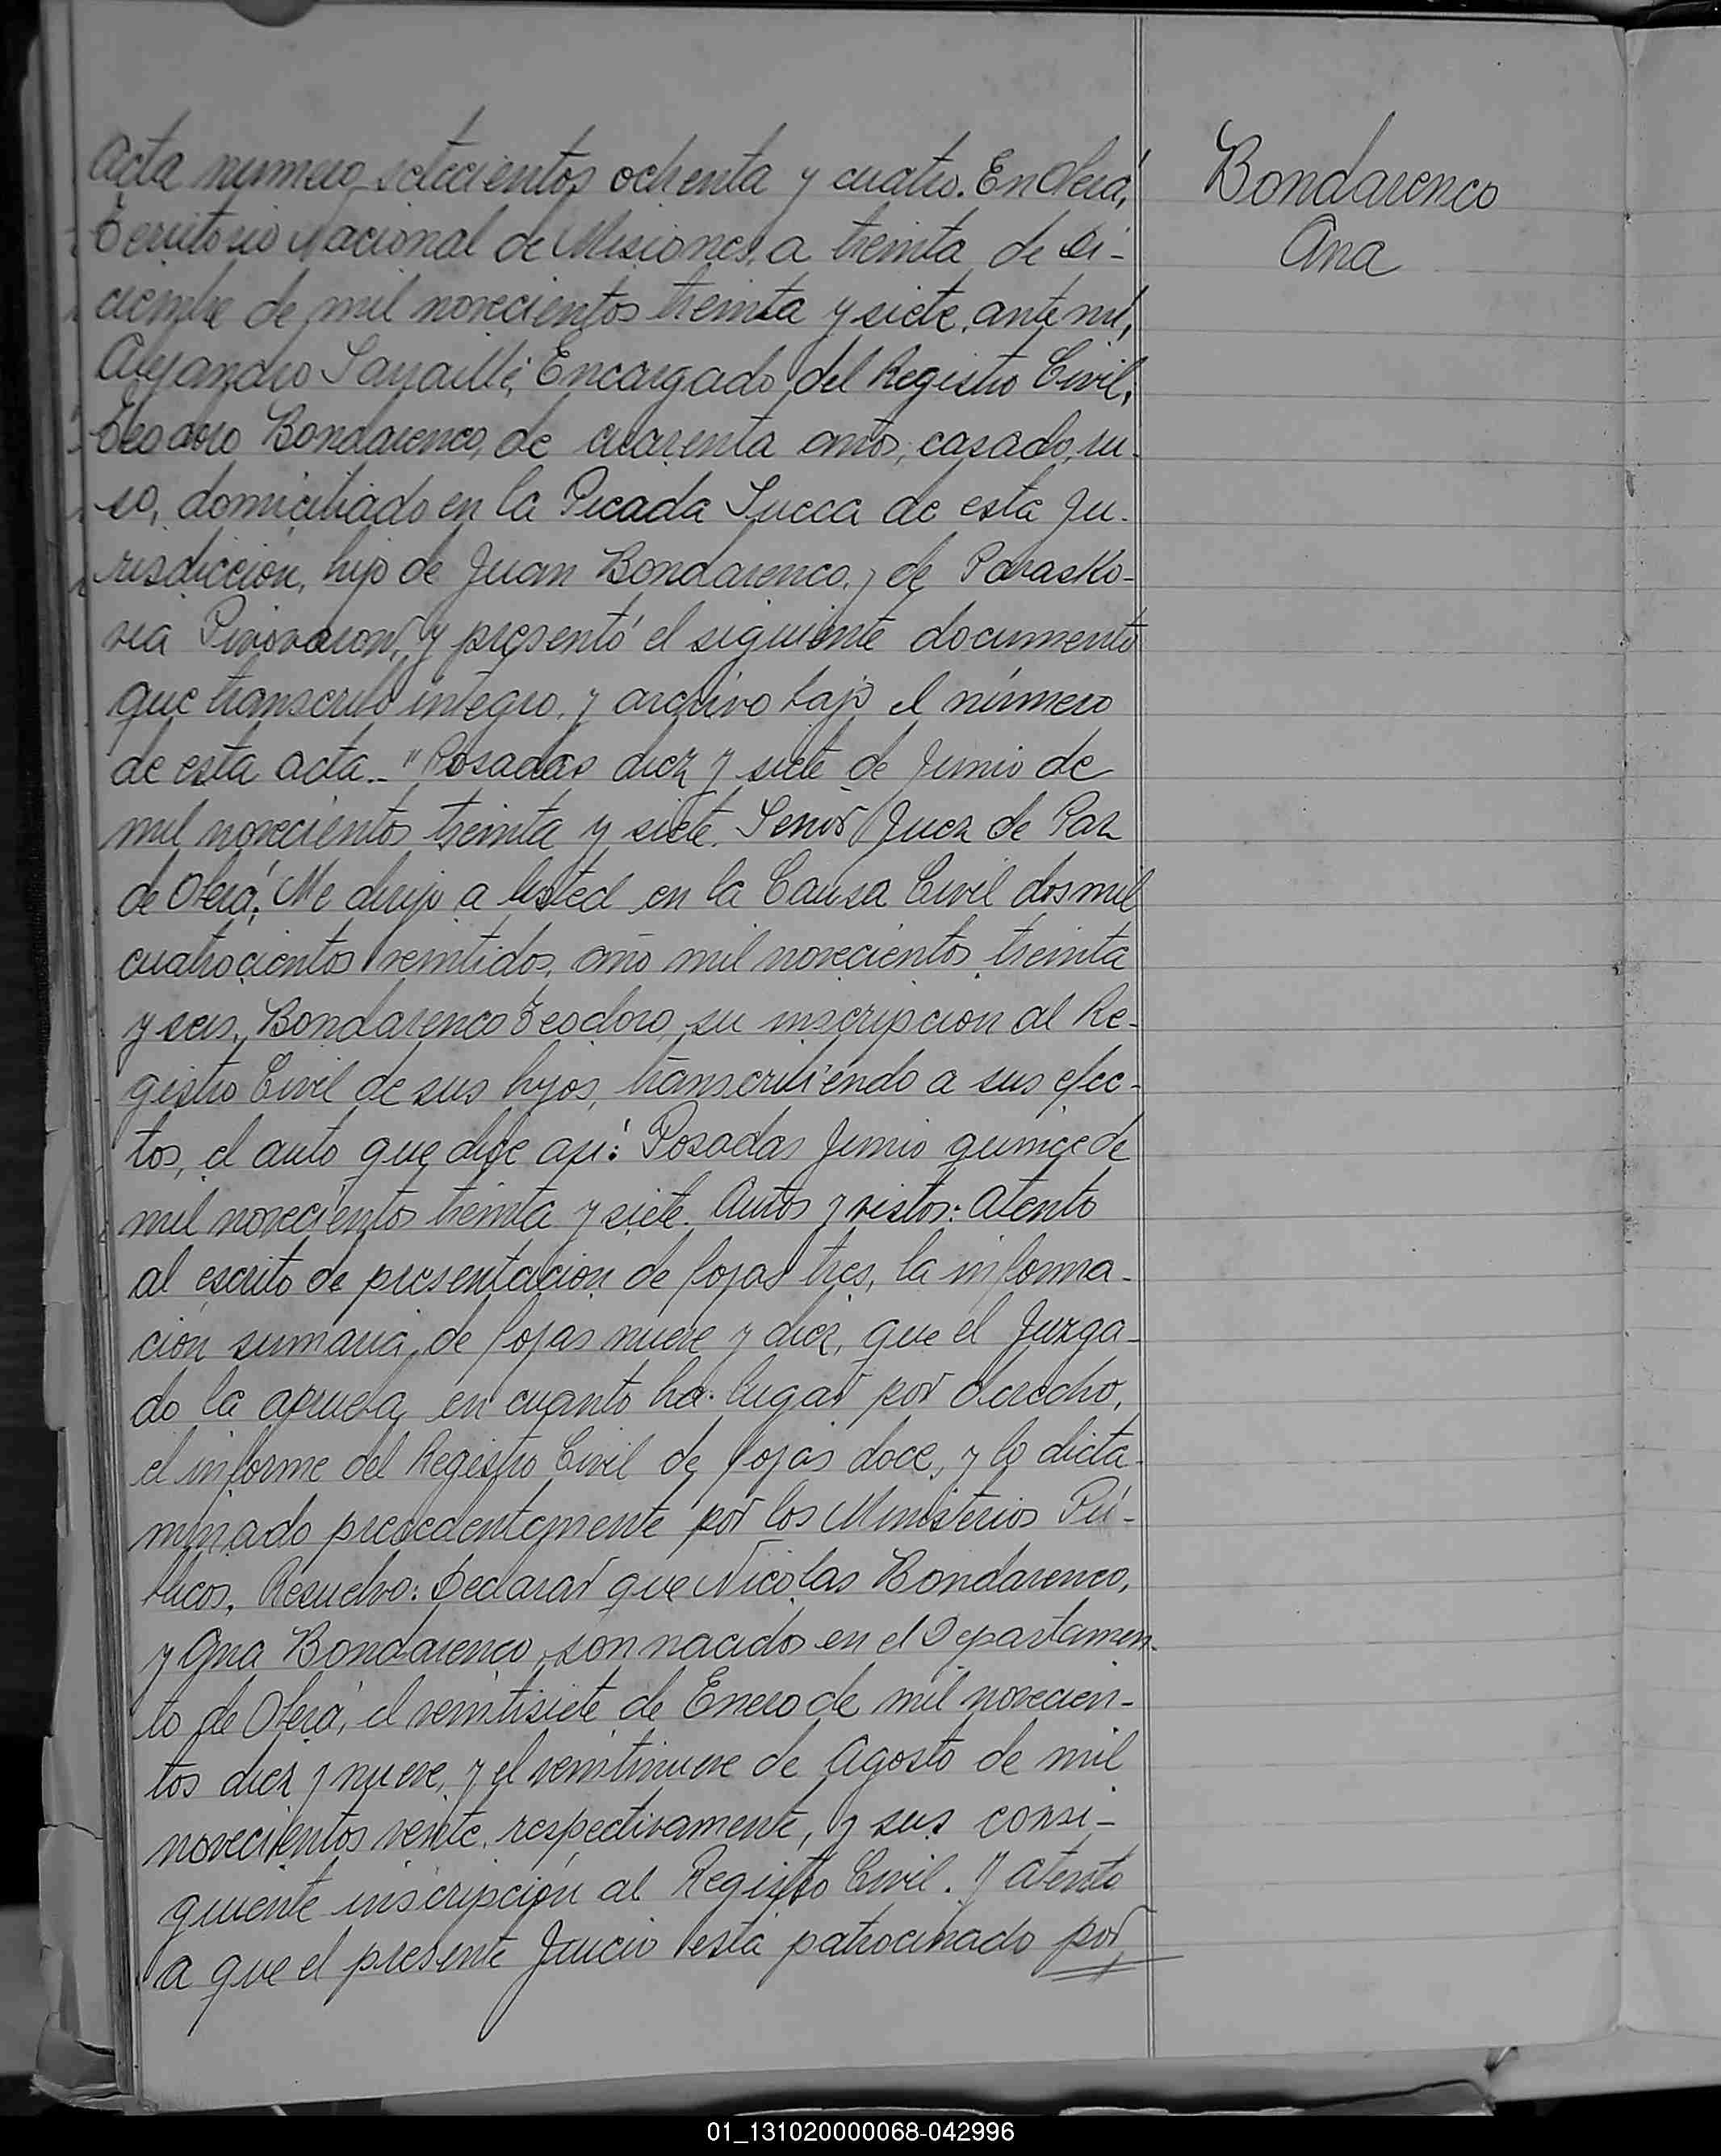 Acta número setecientos ochenta y cuatro. En Oberá,
Territorio Nacional de Misiones, a treinta de Di-
ciembre de mil novecientos treinta y siete, ante mí,
Alejandro Encargado del Registro Civil,
Teodoro Bondarenco, de cuarenta años, casado, ru-
so, domiciliado en la Picada Sueca de esta Ju-
risdicción, hijo de Juan Bondarenco, y de Parasko-
via y presentó el siguiente documento
que transcribo íntegro, y archivo bajo el número
de esta acta.- "Posadas diez y siete de Junio de
mil novecientos treinta y siete. Señor Juez de Paz
de Oberá: Me dirijo a Usted en la Causa Civil dos mil
cuatrocientos veintidos, año mil novecientos treinta
y seis, Bondarenco Teodoro, su inscripcion al Re-
gistro Civil de sus hijos, transcribiendo a sus efec-
tos, el auto que dice así: Posadas Junio quince de
mil novecientos treinta y siete. Autos y vistos: Atento
al escrito de presentación de fojas tres, la informa-
ción sumaria, de fojas nueve y diez, que el Juzga-
do la aprueba, en cuanto ha lugar por derecho,
el informe del Registro Civil de fojas doce, y lo dicta-
minado precedentemente por los Ministerios Pú-
blicos, Resuelvo: Declarar que Nicolas Bondarenco,
y Ana Bondarenco, son nacidos en el Departamen-
to de Oberá, el veintisiete de Enero de mil novecien-
tos diez y nueve, y el veintinueve de Agosto de mil
novecientos veinte, respectivamente, y sus consi-
guiente inscripción al Registro Civil. Y atento
a que el presente Juicio está patrocinado por
Bondarenco
Ana
01_131020000068-042996